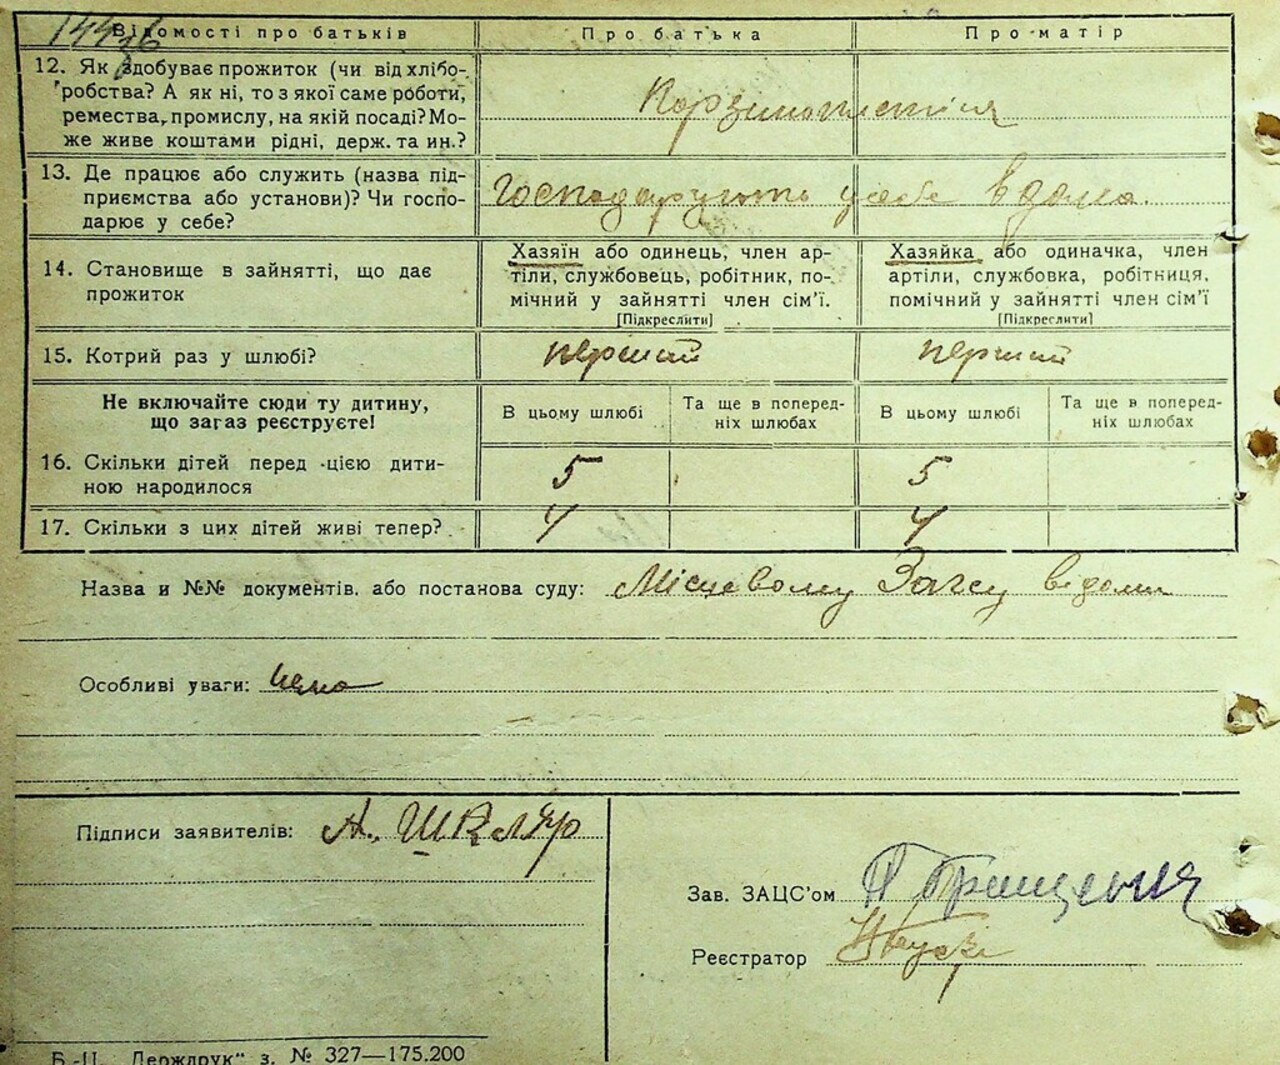 14436
Відомості про батьків Про батька Про матір
12. Як здобуває прожиток (чи від хлібо-
робства? А як ні, то з якої саме роботи,
ремества, промислу, на якій посаді? Мо-
же живе коштами рідні, держ. та ин.?
Корзиноплетіня
13. Де працює або служить (назва під-
приємства або установи)? Чи госпо-
дарює у себе?
Господарують у себе вдома.
14. Становище в зайнятті, що дає
прожиток
Хазяїн або одинець, член ар-
тіли, службовець, робітник, по-
мічний у зайнятті член сім'ї.
[Підкреслити]
Хазяйка або одиначка, член
артіли, службовка, робітниця,
помічний у зайнятті член сім'ї
[Підкреслити]
15. Котрий раз у шлюбі? перший перший
Не включайте сюди ту дитину,
що загаз реєструєте!
В цьому шлюбі
Та ще в поперед-
ніх шлюбах
В цьому шлюбі
Та ще в поперед-
ніх шлюбах
16. Скільки дітей перед цією дити-
ною народилося
5 5
17. Скільки з цих дітей живі тепер? 4 4
Назва и №№ документів. або постанова суду: Місцевому Загсу відомі
Особливі уваги: нема
Підписи заявителів: А. Шкляр
Зав. ЗАЦС'ом
Реєстратор
Б.-Ц. „Держдрук" з. № 327—175.200